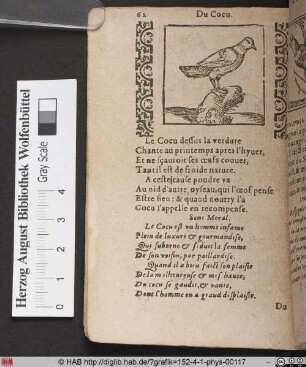 62
Du Cocu.
Le Cocu dessus la verdure
Chante au printemps apres l'hyuer,
Et ne sçauroit ses œufs couuer,
Tant il est de froide nature.
A ceste cause poudre va
Au nid d'autre oyseau, qui l'œuf pense
Estre sien: & quand nourry l'a
Cocu l'appelle en recompense.
Sens Moral.
Le Cocu est vn homme infame
Plein de luxure & gourmandise,
Qui suborne & seduit la femme
De son voisin, par paillardise.
Quand il a bien faict son plaisir
De la malheureuse & meschante,
Du cocu se gaudit, & vante,
Dont l'homme en a grand desplaisir.
Du
Herzog August Bibliothek Wolfenbüttel
Gray Scale
© HAB http://diglib.hab.de/?grafik=152-4-1-phys-00117